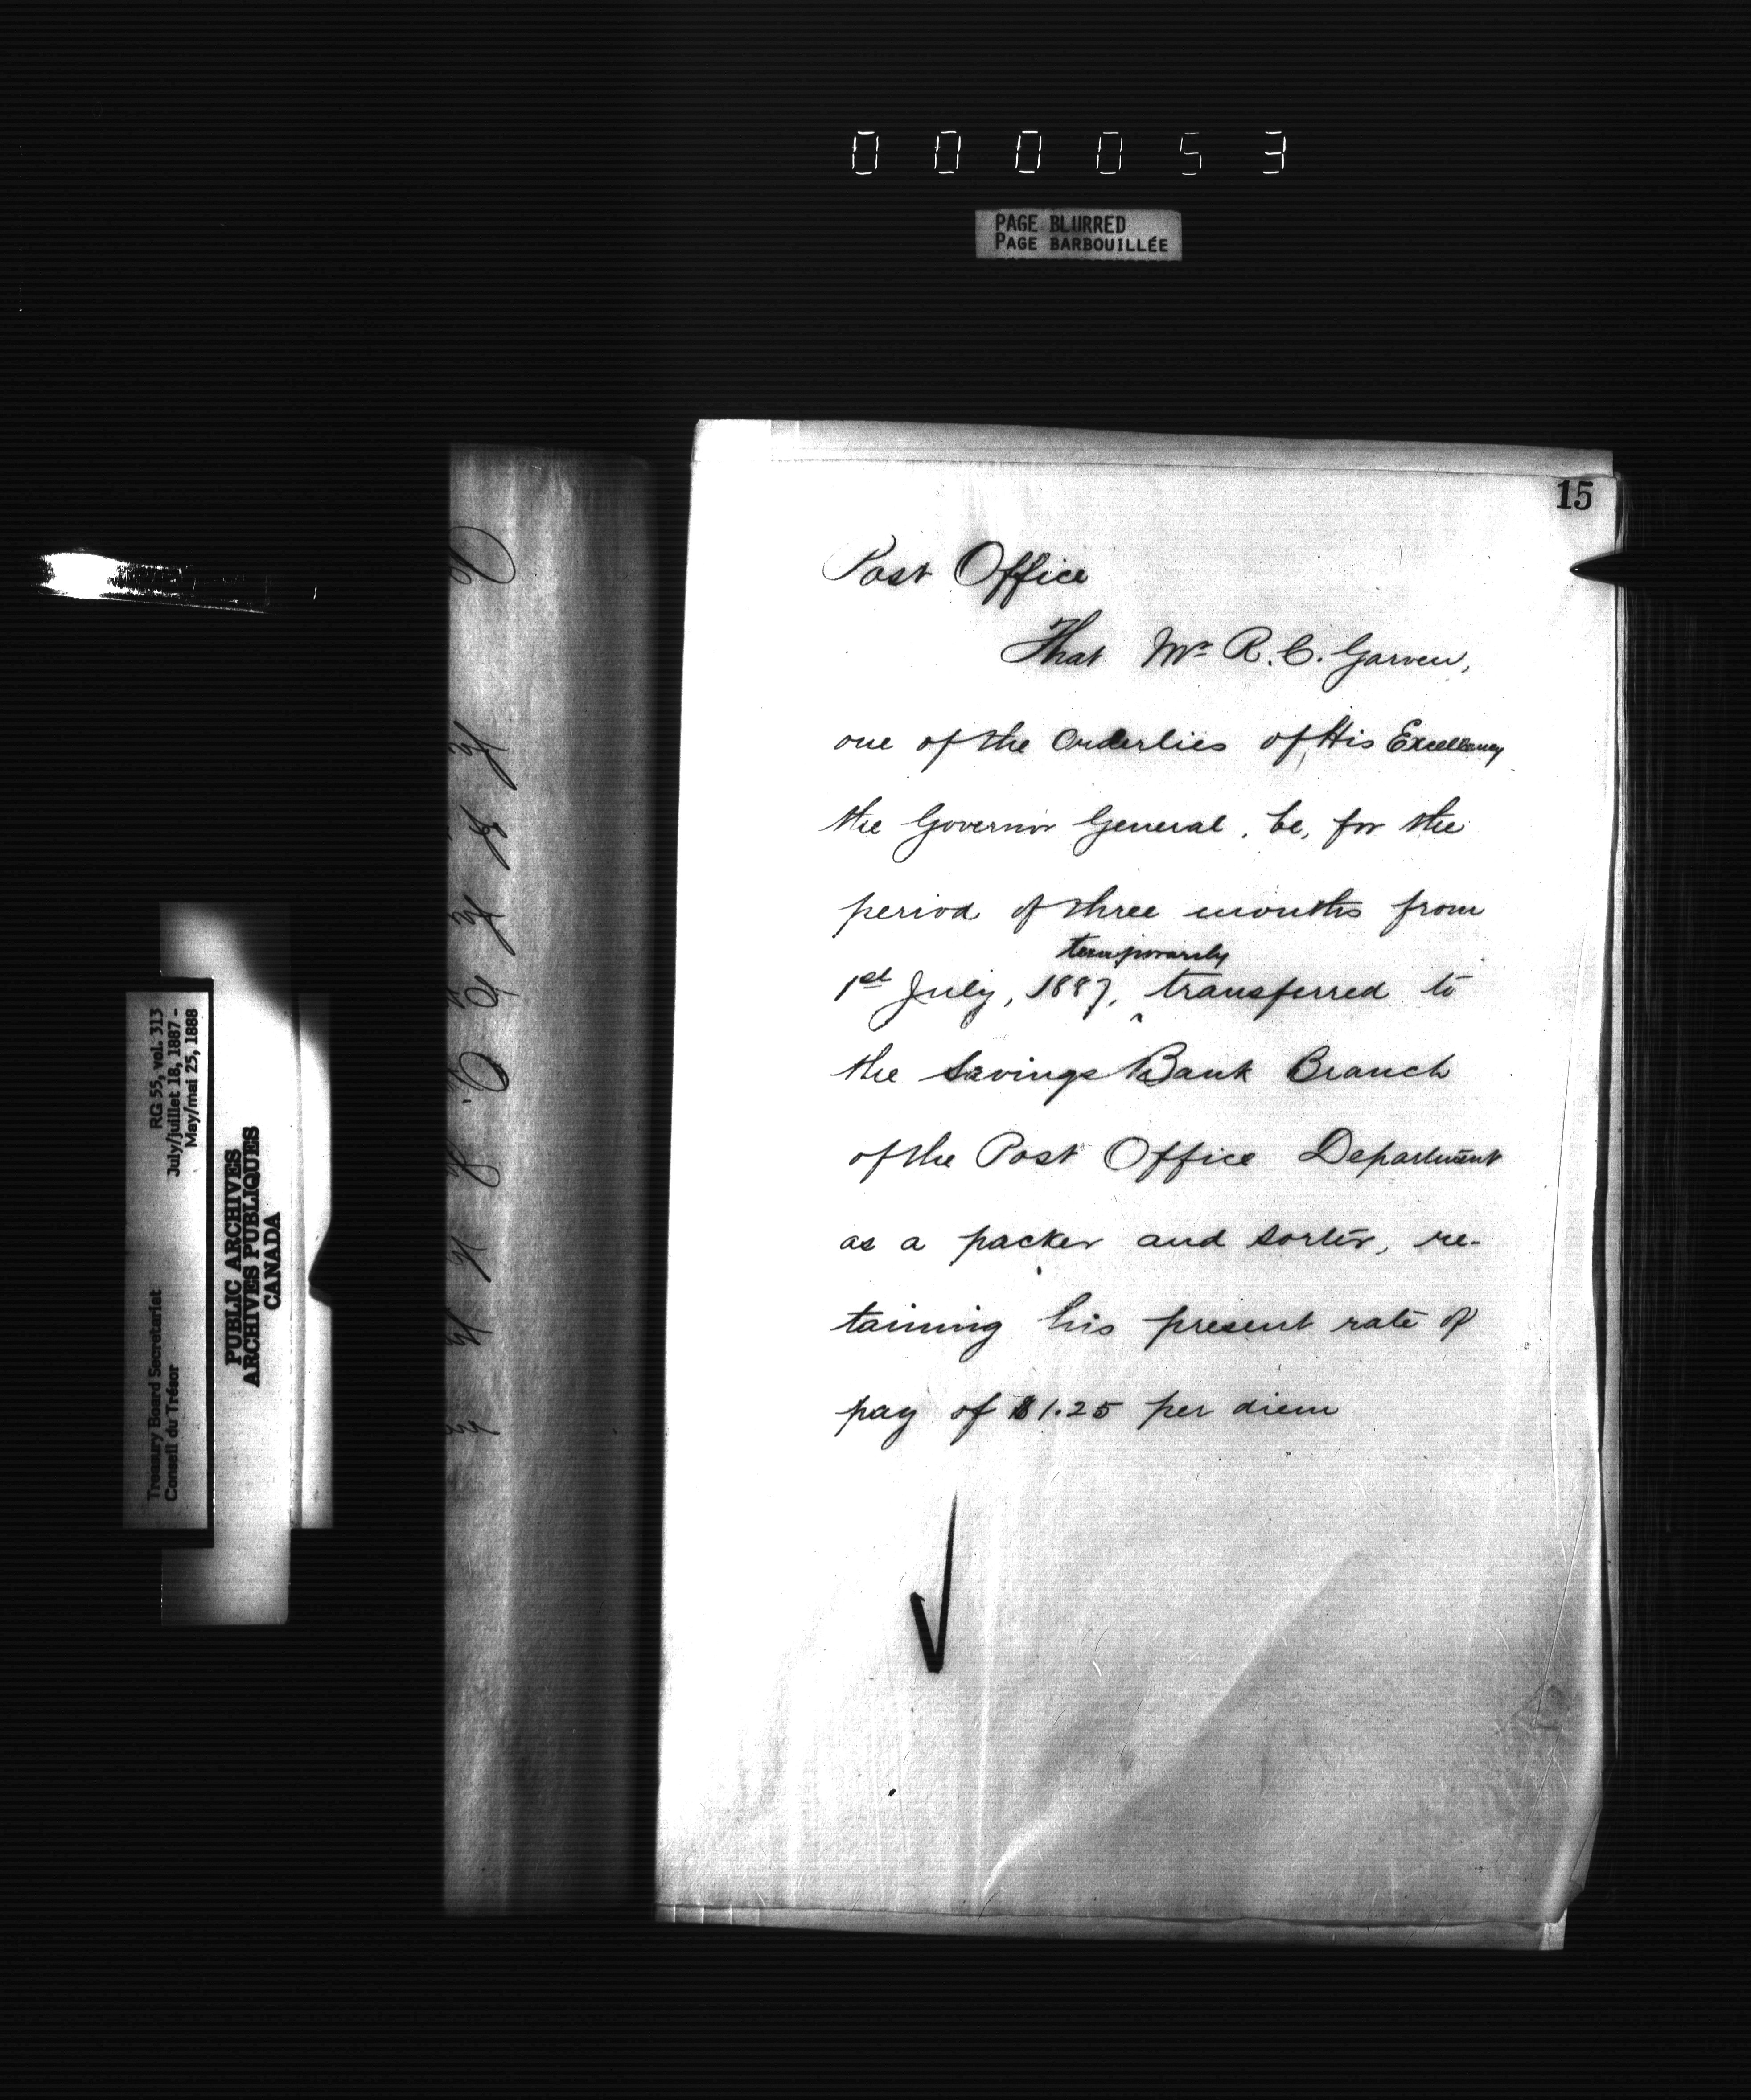 000053
PAGE BLURRED
PAGE BARBOUILLÉE
15
Post Office
That Mr R. C. Garven,
one of the Orderlies of His Excellency
the Governor General, be, for the
period of three months from
temporarily
1st July, 1887, ^ transferred to
the Savings Bank Branch
of the Post Office Department
as a packer and sorter, re-
taining his present rate of
pay of $1.25 per diem
RG 55, vol. 313
July/juillet 18, 1887 -
May/mai 25, 1888
Treasury Board Secretariat
Conseil du Trésor
PUBLIC ARCHIVES
ARCHIVES PUBLIQUES
CANADA